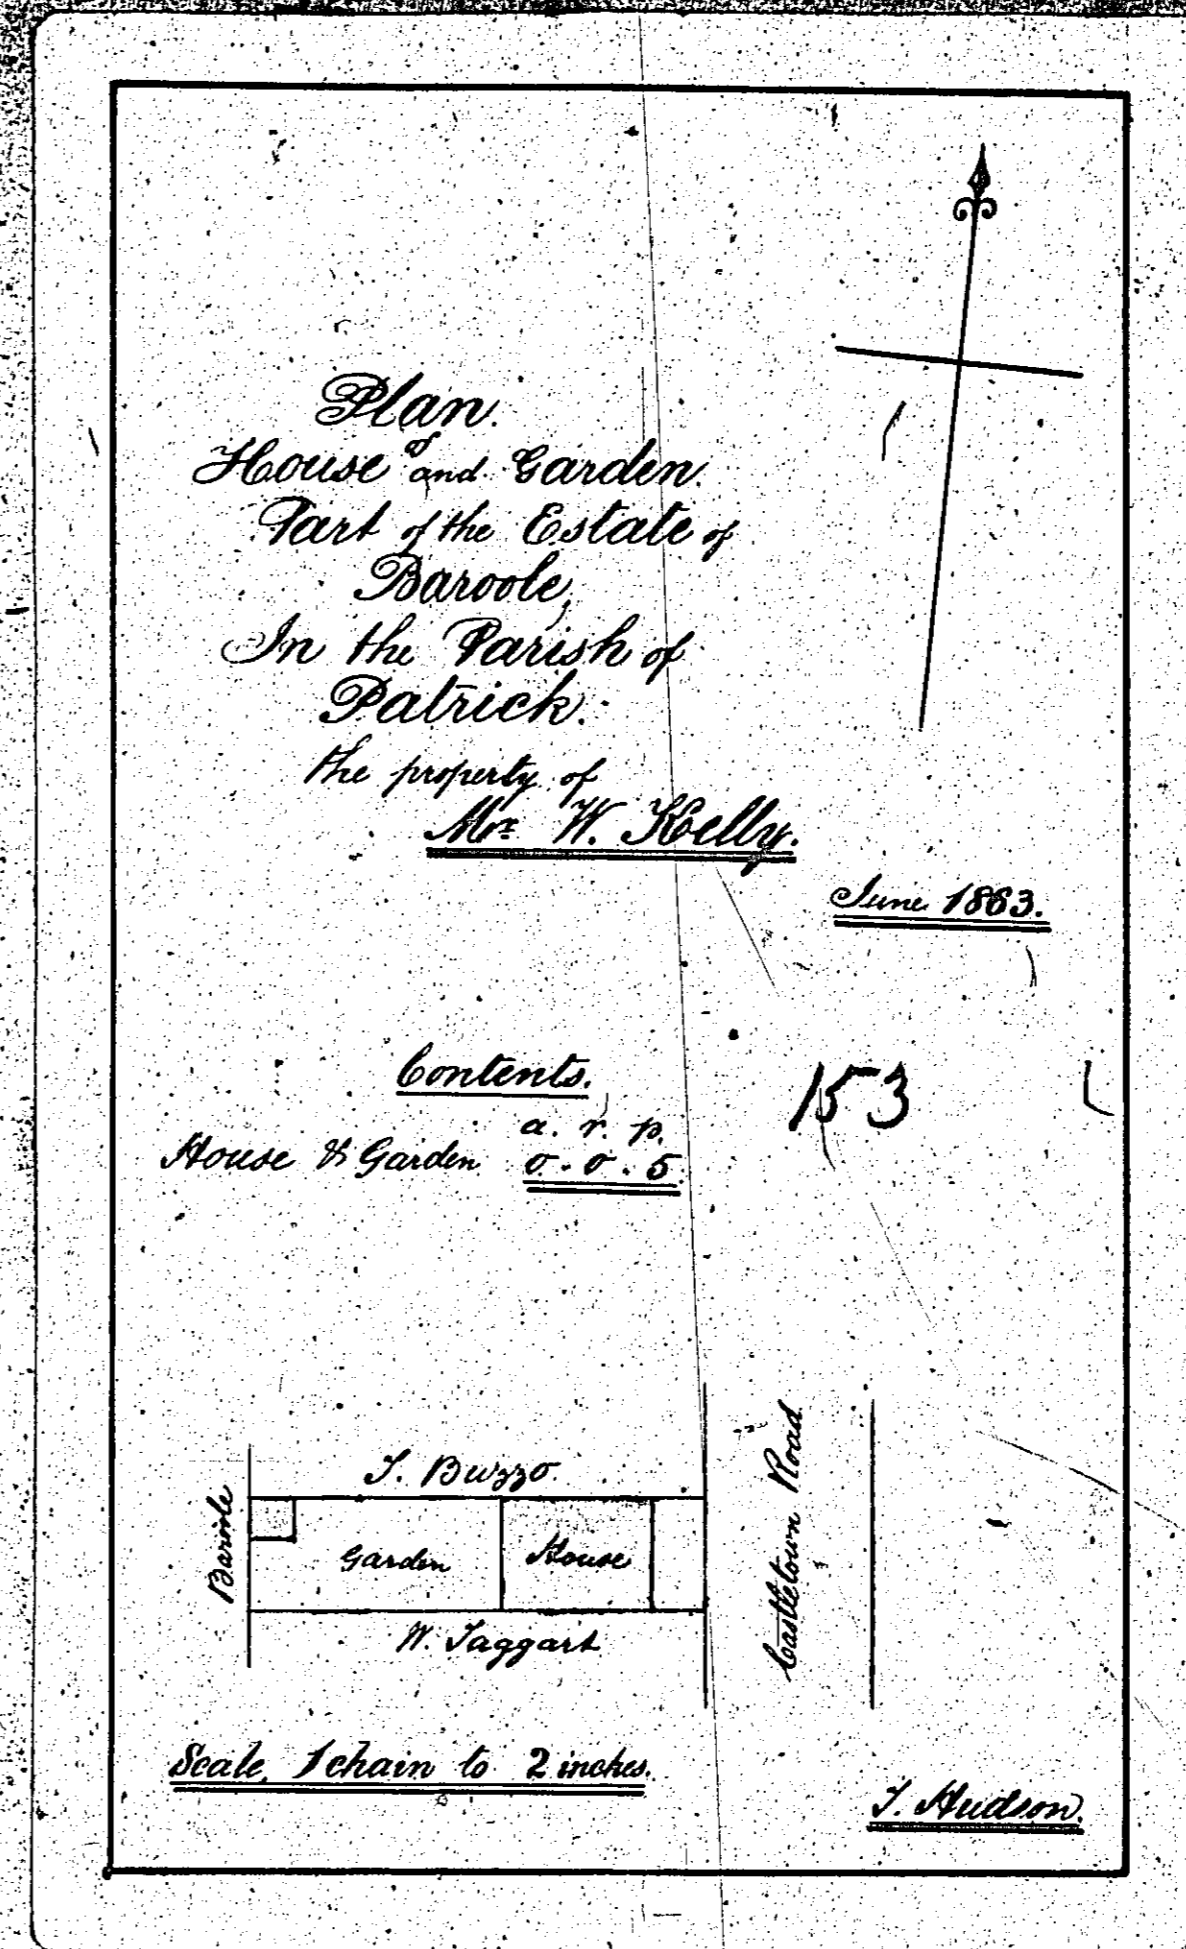 Plan
of
House and Garden.
Part of the Estate of
Baroole,
In the Parish of
Patrick.
the property of
Mr. W. Kelly.
June 1863.
Contents.
a. r. p.
House & Garden 0. 0. 5
153
J. Buzzo
Baroole
Garden
House
W. Taggart
Castletown Road
Scale, 1 chain to 2 inches.
J. Hudson.